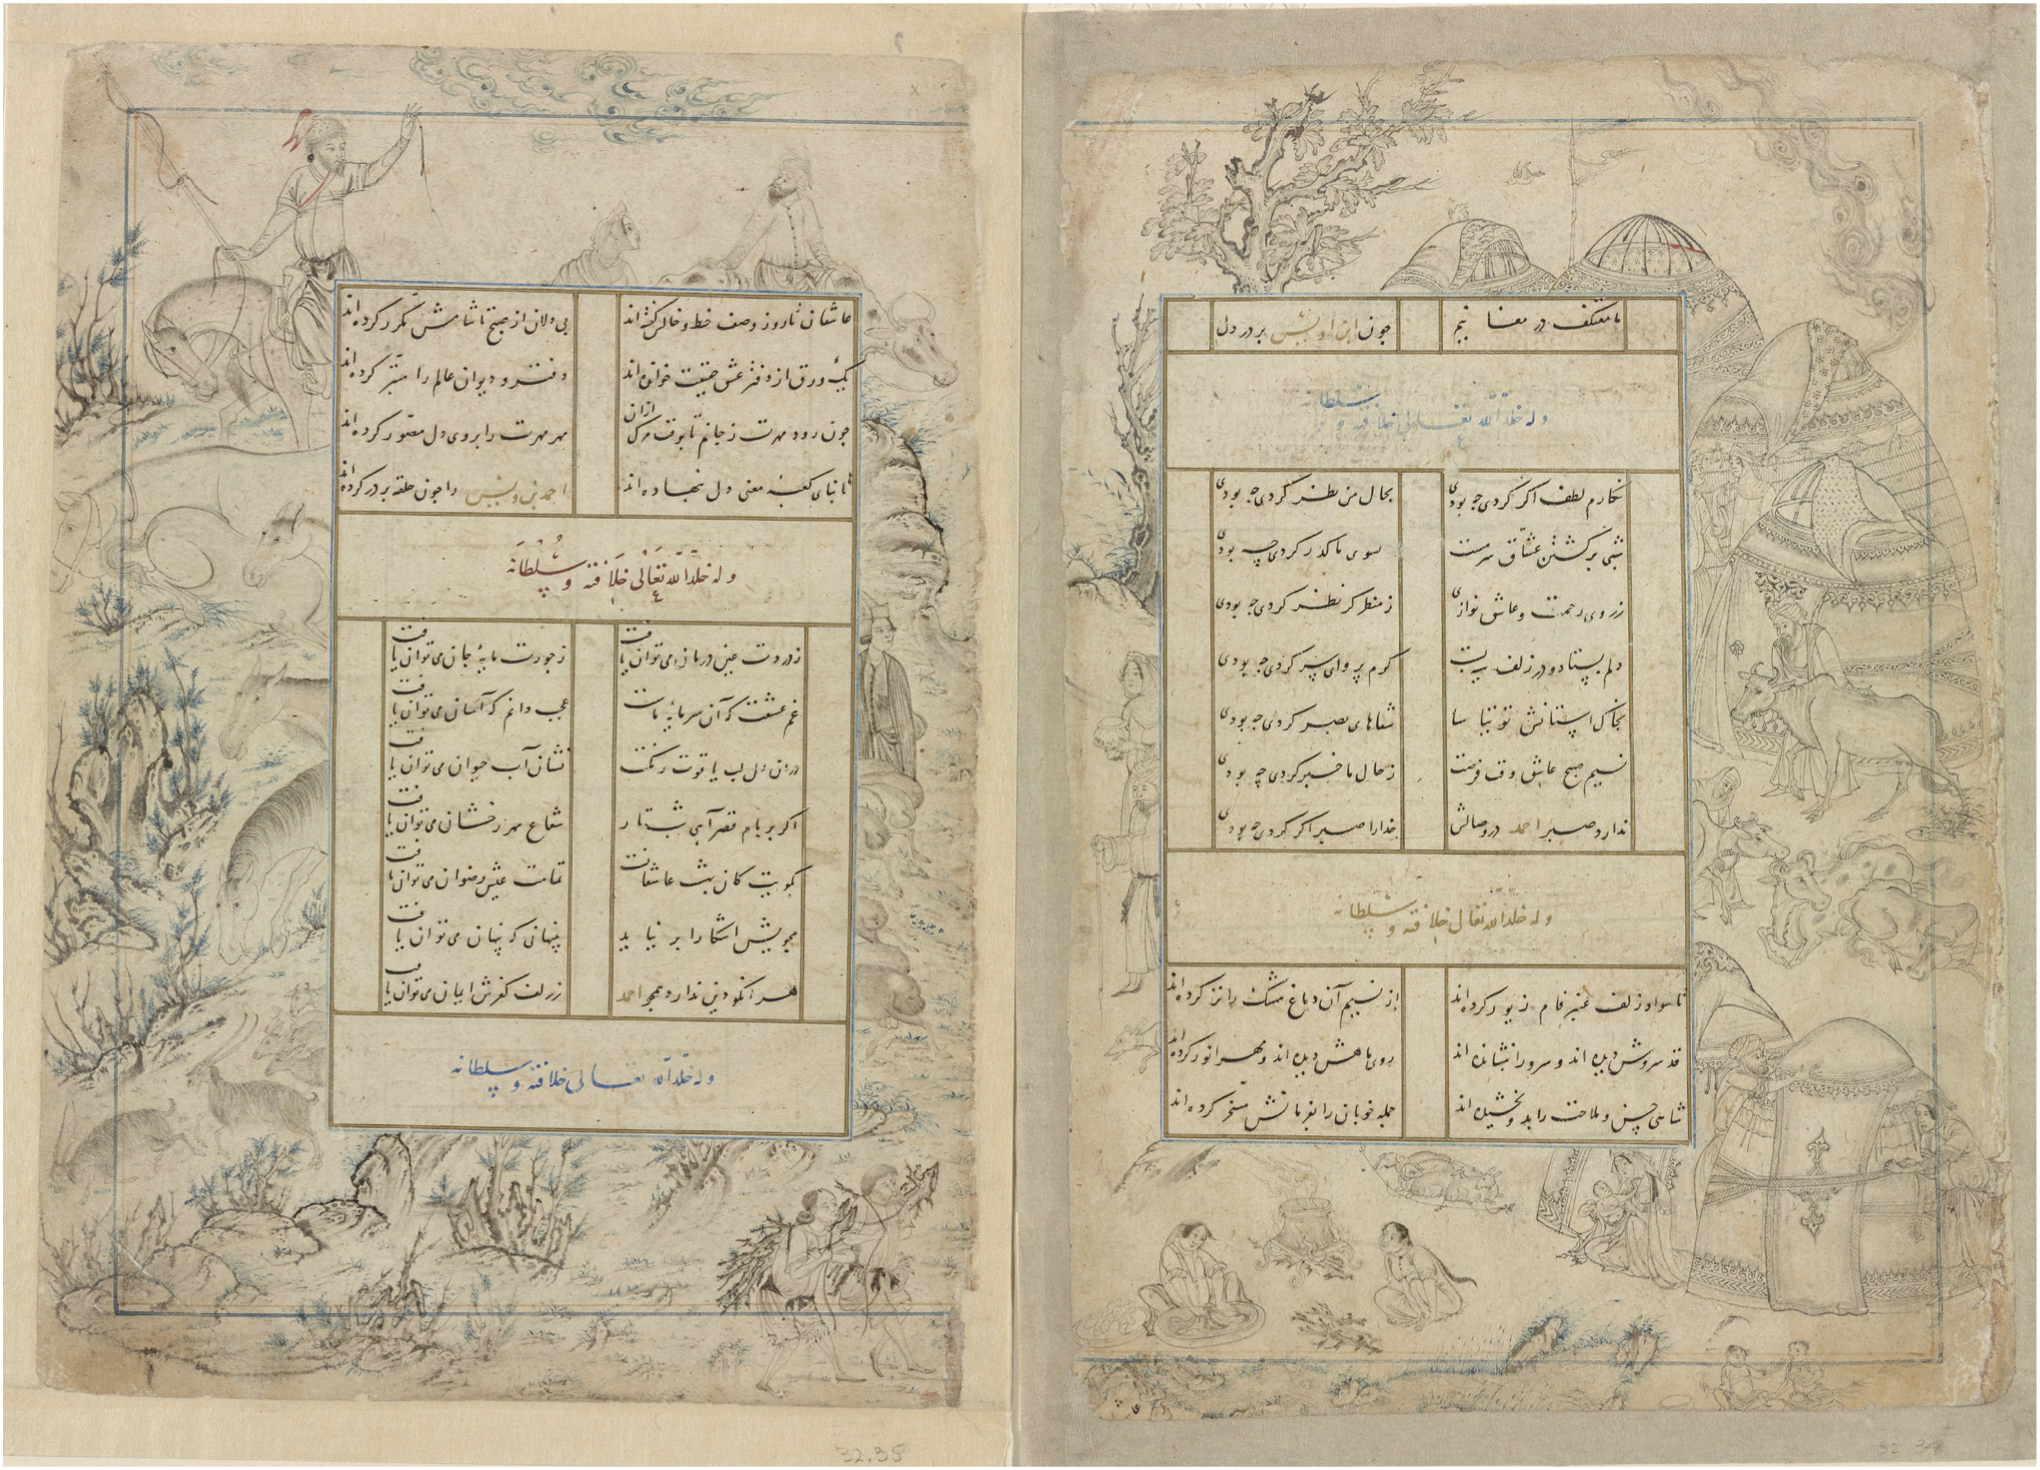 ما معتکف در مغانیم چون ابن اویس بر در دل
وله خلّد اللّه تعالی خلافته و سلطانه
نکارم لطف اکر کردی چه بودی بحال من نظر کردی چه بودی
شبی بر کشتن عشّاق سرمست بسوی ما کذر کردی چه بودی
ز روی رحمت و عاشق نوازی ز منظر کر نظر کردی چه بودی
دلم بستاد و در زلف کرم پروای سر کردی چه بودی
بخاک استانش توتیاسا شفاهای بصر کردی چه بودی
نسیم صبح عاشق وقت فرصت ز حال ما خبر کردی چه بودی
ندارد صبر احمد در وصالش خدارا صبر اکر کردی چه بودی
وله خلد اللّه تعالی خلافته و سلطانه
تا سواد زلف عنبر فام زیور کرده‌اند از نسیم آن دماغ مشک را تر کرده‌اند
قد سروش دیده اند و سرو را بنشانده اند روی ماهش دیده اند و مهر انور کرده‌اند
شاهی حسن و ملاحت را بدو بخشیده اند جمله خوبان را بفرمانش مسخّر کرده اند
عاشقان تا روز وصف خط و خالش کفته اند بی دلان از صبح تا شامش مکرر کرده‌اند
یک ورق از دفتر عشق حقیقت خوانده‌اند دفتر و دیوان عالم را مبتر کرده‌اند
چون رود مهرت ز جانم تا بوقت مرک ازان مهر مهرت را بروی دل مصوّر کرده‌اند
تا بنای کعبه معنی دل بنهاده اند احمد بن ویس را چون حلقه بر در کرده‌اند
وله خلّد اللّه تعالی خلافته و سلطانه
ز دردت عین درمان می توان یافت ز جورت مایهٔ جان می توان یافت
غم عشقت که آن سرمایهٔ ماست عجب دانم که آسان می توان یافت
درون دل لب یاقوت رنکت نشان آب حیوان می توان یافت
اکر بر بام قصر آیی شب تار شعاع مهر رخشان می توان یافت
بکویت کان بهشت عاشقانست تمامت عیش رضوان می توان یافت
بجویش اشکارا بر نیاید پنهانی که پنهان می توان یافت
هر انکو دین ندارد همچو احمد ز زلف کفرش ایمان می توان یافت
وله خلّد اللّه تعالی خلافته و سلطانه
32.35
32 34